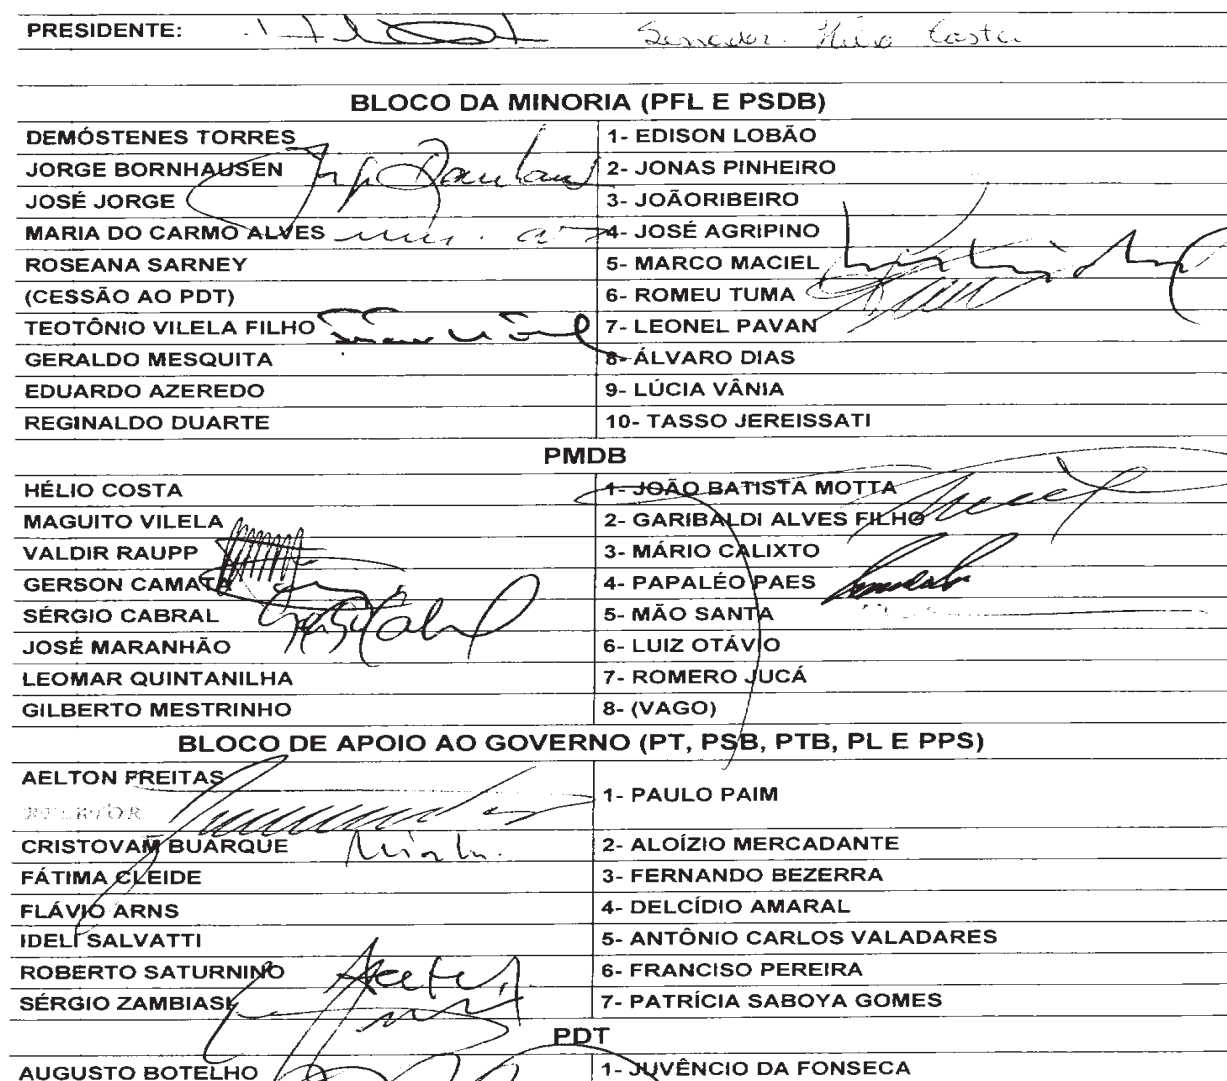 PRESIDENTE: Senador Hélio Costa
BLOCO DA MINORIA (PFL E PSDB)
DEMÓSTENES TORRES 1- EDISON LOBÃO
JORGE BORNHAUSEN 2- JONAS PINHEIRO
JOSÉ JORGE 3- JOÃORIBEIRO
MARIA DO CARMO ALVES 4- JOSÉ AGRIPINO
ROSEANA SARNEY 5- MARCO MACIEL
(CESSÃO AO PDT) 6- ROMEU TUMA
TEOTÔNIO VILELA FILHO 7- LEONEL PAVAN
GERALDO MESQUITA 8- ÁLVARO DIAS
EDUARDO AZEREDO 9- LÚCIA VÂNIA
REGINALDO DUARTE 10- TASSO JEREISSATI
PMDB
HÉLIO COSTA 1- JOÃO BATISTA MOTTA
MAGUITO VILELA 2- GARIBALDI ALVES FILHO
VALDIR RAUPP 3- MÁRIO CALIXTO
GERSON CAMATA 4- PAPALÉO PAES
SÉRGIO CABRAL 5- MÃO SANTA
JOSÉ MARANHÃO 6- LUIZ OTÁVIO
LEOMAR QUINTANILHA 7- ROMERO JUCÁ
GILBERTO MESTRINHO 8- (VAGO)
BLOCO DE APOIO AO GOVERNO (PT, PSB, PTB, PL E PPS)
AELTON FREITAS 1- PAULO PAIM
RELATOR
CRISTOVAM BUARQUE 2- ALOÍZIO MERCADANTE
FÁTIMA CLEIDE 3- FERNANDO BEZERRA
FLÁVIO ARNS 4- DELCÍDIO AMARAL
IDELI SALVATTI 5- ANTÔNIO CARLOS VALADARES
ROBERTO SATURNINO 6- FRANCISO PEREIRA
SÉRGIO ZAMBIASI 7- PATRÍCIA SABOYA GOMES
PDT
AUGUSTO BOTELHO 1- JUVÊNCIO DA FONSECA